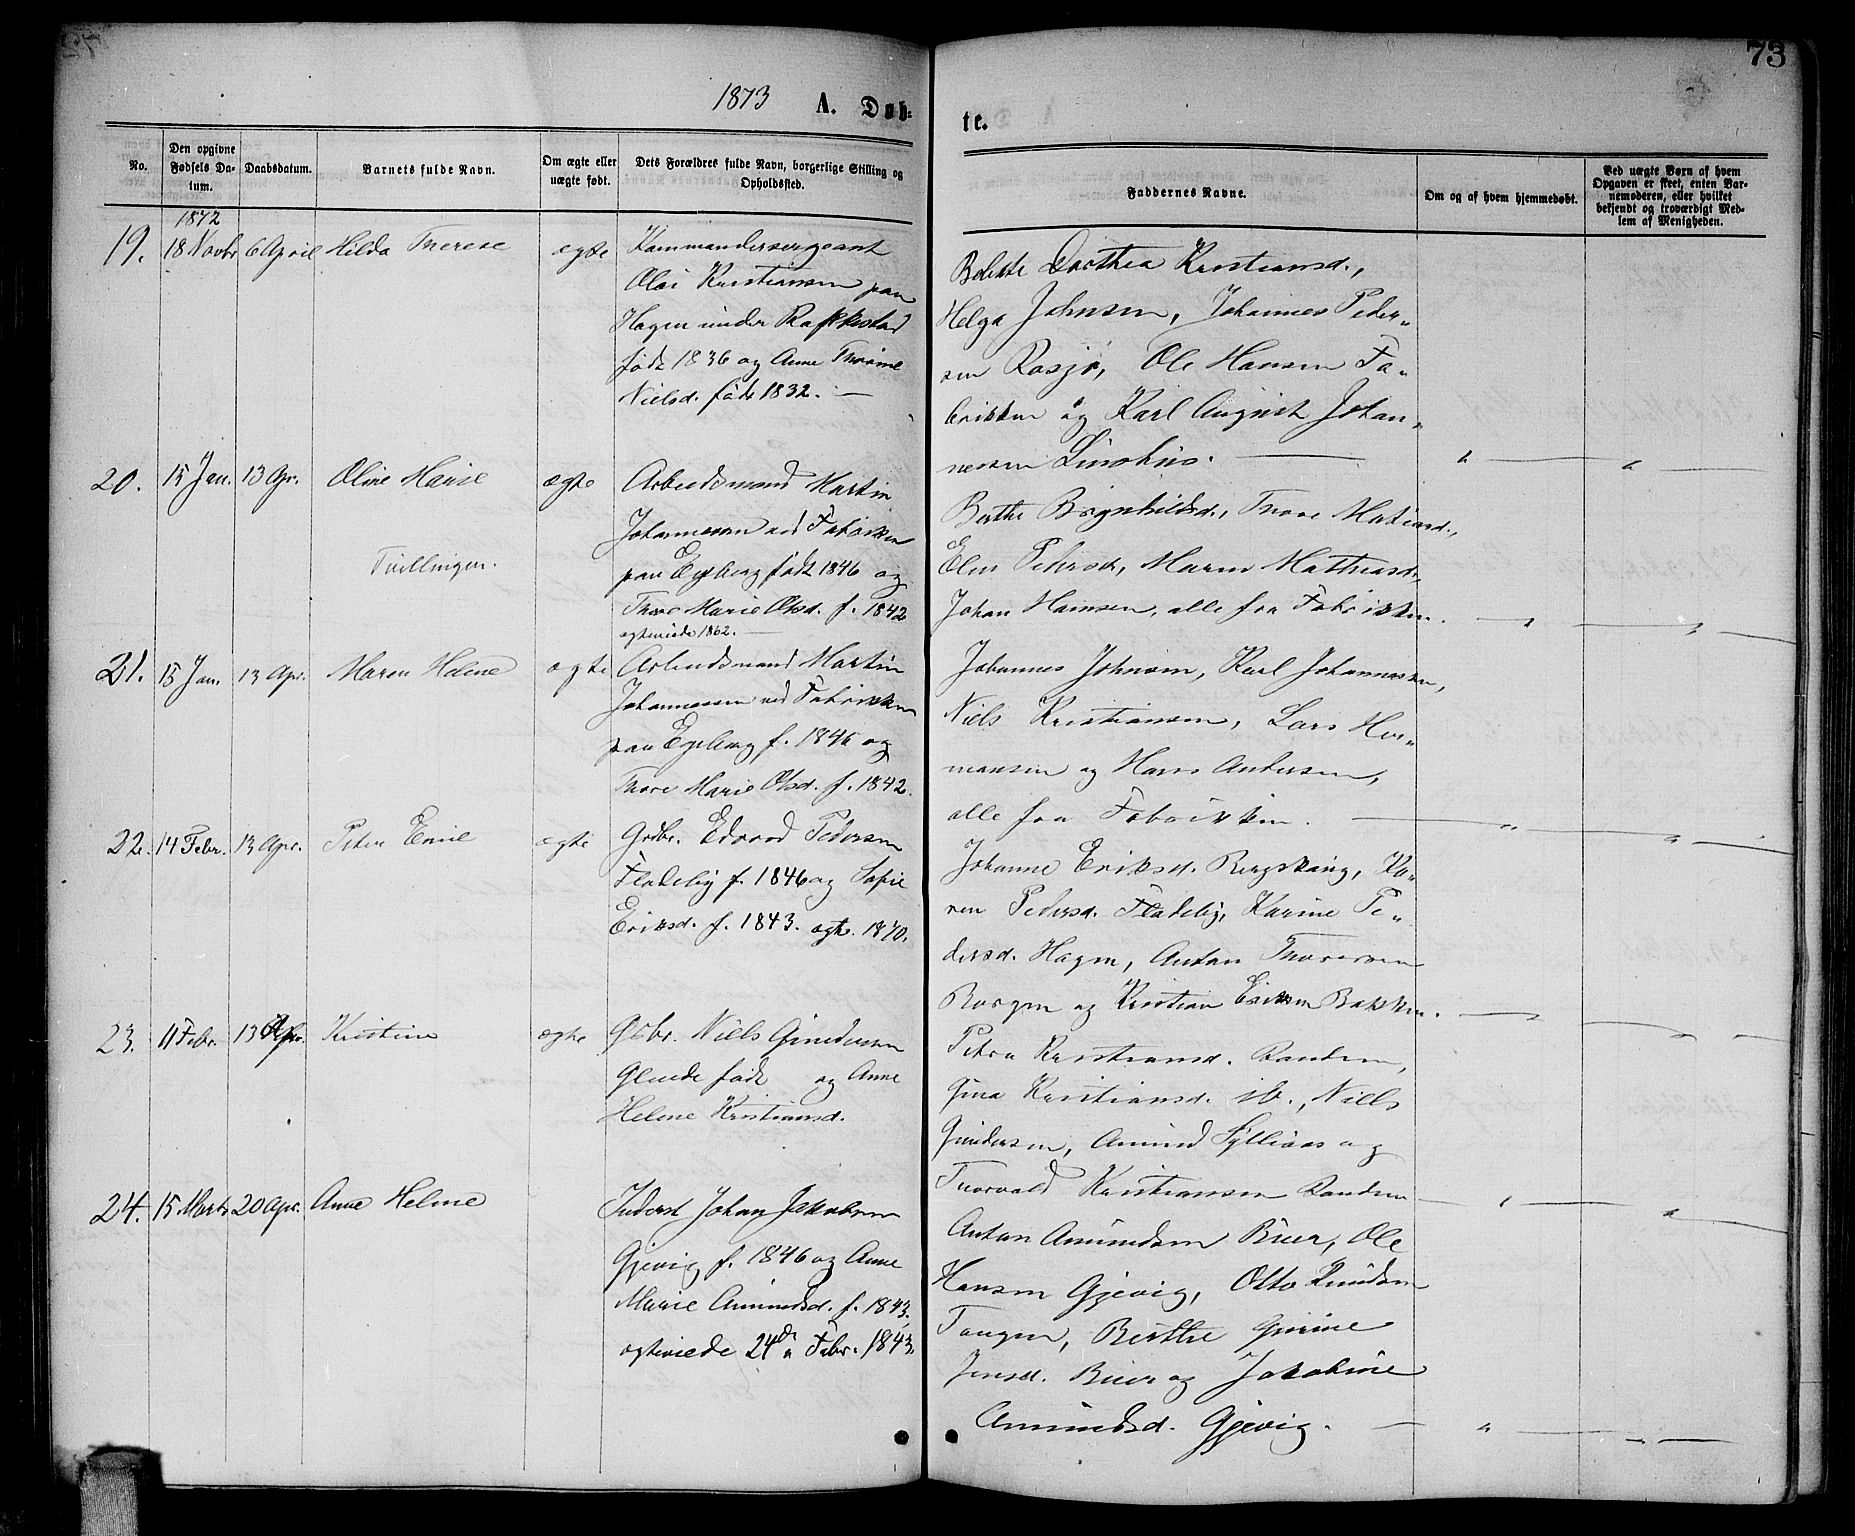 73
1873 A. Døb-
te.
No.
Den opgivne
Fødsels Da-
tum.
Daabsdatum.
Barnets fulde Navn.
Om ægte eller
uægte født.
Dets Forældres fulde Navn, borgerlige Stilling og
Opholdssted.
Faddernes Navne.
Om og af hvem hjemmedøbt.
Ved uægte Børn af hvem
Opgaven er skeet, enten Bar-
nemoderen, eller hvilket
bekjendt og troværdigt Med-
lem af Menigheden.
1872
19. 18 Novbr 6 April Hilda Therese ægte Kommandersergeant
Olai Kristiansen paa
Hagen under Rakkestad
født 1836 og Anne
Nielsd. født 1832. —
Dorthea Kristiansd.,
Helga Johnsen, Johannes Peder-
sen Rosjø, Ole Hansen Fa-
brikken og Karl August Johan-
nessen
20. 15 Jan. 13 Apr. Oline Marie ægte Arbeidsmand Martin
Johannesen ved Fabrikken
paa Egeberg født 1846 og
Thore Marie Olsd. f. 1842
ægteviede 1862. —
Tvillinger.
Berthe Thore Mathiasd.,
Elen Pedersd., Maren Mathiasd.,
Johan Hansen, alle fra Fabrikken.
21. 15 Jan. 13 Apr. Maren Helene ægte Arbeidsmand Martin
Johannessen ved Fabrikken
paa Egeberg f. 1846 og
Thore Marie Olsd. f. 1842.
Johannes Johnsen, Karl Johannessen,
Niels Kristiansen, Lars Her-
mansen og Hans Andersen,
alle fra Fabrikken. —
22. 14 Febr. 13 Apr. Peter Emil ægte Grdbr. Edvard Pedersen
Fladeby f. 1846 og Sofie
Eriksd. f. 1843. ægtv. 1870.
Johanne Eriksd. Ka-
ren Pedersd. Fladeby, Karine Pe-
dersd. Hagen, Anton Thoresen
og Kristian Eriksen Bakken.
23. 11 Febr. 13 Apr. Kristine ægte Gbr. Niels Gundersen
født og Anne
Helene Kristiansd.
Petra Kristiansd. Randem,
Gina Kristiansd. ib., Niels
Gundersen, Amund og
Thorvald Kristiansen Randem
24. 15 Marts 20 Apr. Anne Helene Inderst Johan Jakobsen
Gjevig f. 1846 og Anne
Marie Amundsd. f. 1843.
ægteviede 24de Febr. 1843.
Anton Amundsen Buer, Ole
Hansen Gjevig, Otto Knudsen
Tangen, Berthe Gurine
Jensd. Buer og Jakobine
Amundsd. Gjevig. —